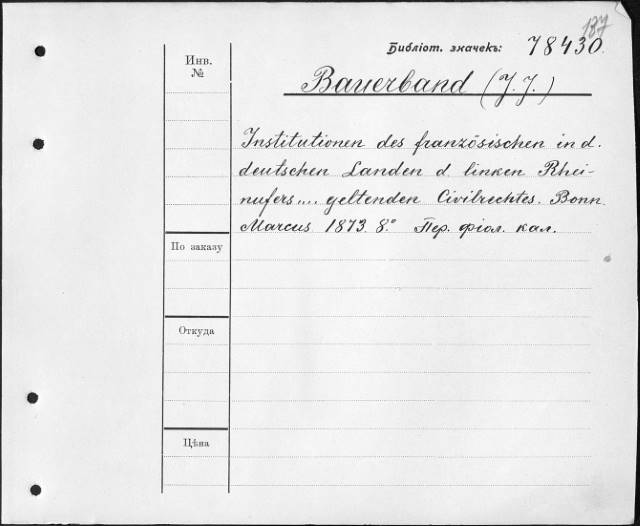 187
Библіот. значекъ: 78430.
Инв.
№
Bauerband (J. J.)
Institutionen des französischen in d.
deutschen Landen d. linken Rhei-
nufers .... geltenden Civilrechtes. Bonn.
Marcus 1873. 8.° Пер. фіол. кал.
По заказу
Откуда
Цѣна